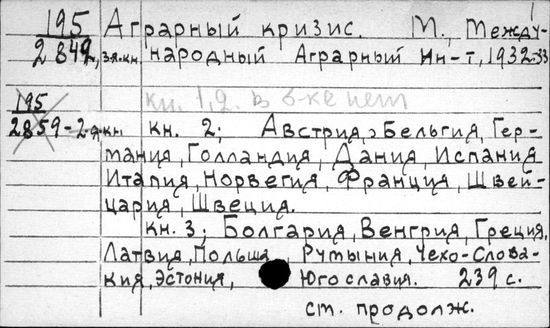 195 Аграрный кризис. М., Между-
2842, з-я.кн. народный Аграрный Ин-т, 1932-33
кн. 1,2. в б-ке нет
195
2859-2-я.кн кн. 2; Австрия, Бельгия, Гер-
мания, Голландия, Дания, Испания
Италия, Норвегия, Франция, Швей-
цария, Швеция.
кн. 3; Болгария, Венгрия, Греция,
Латвия, Польша, Румыния, Чехо-Слова-
кия, Эстония, Югославия. 239 с.
ст. продолж.